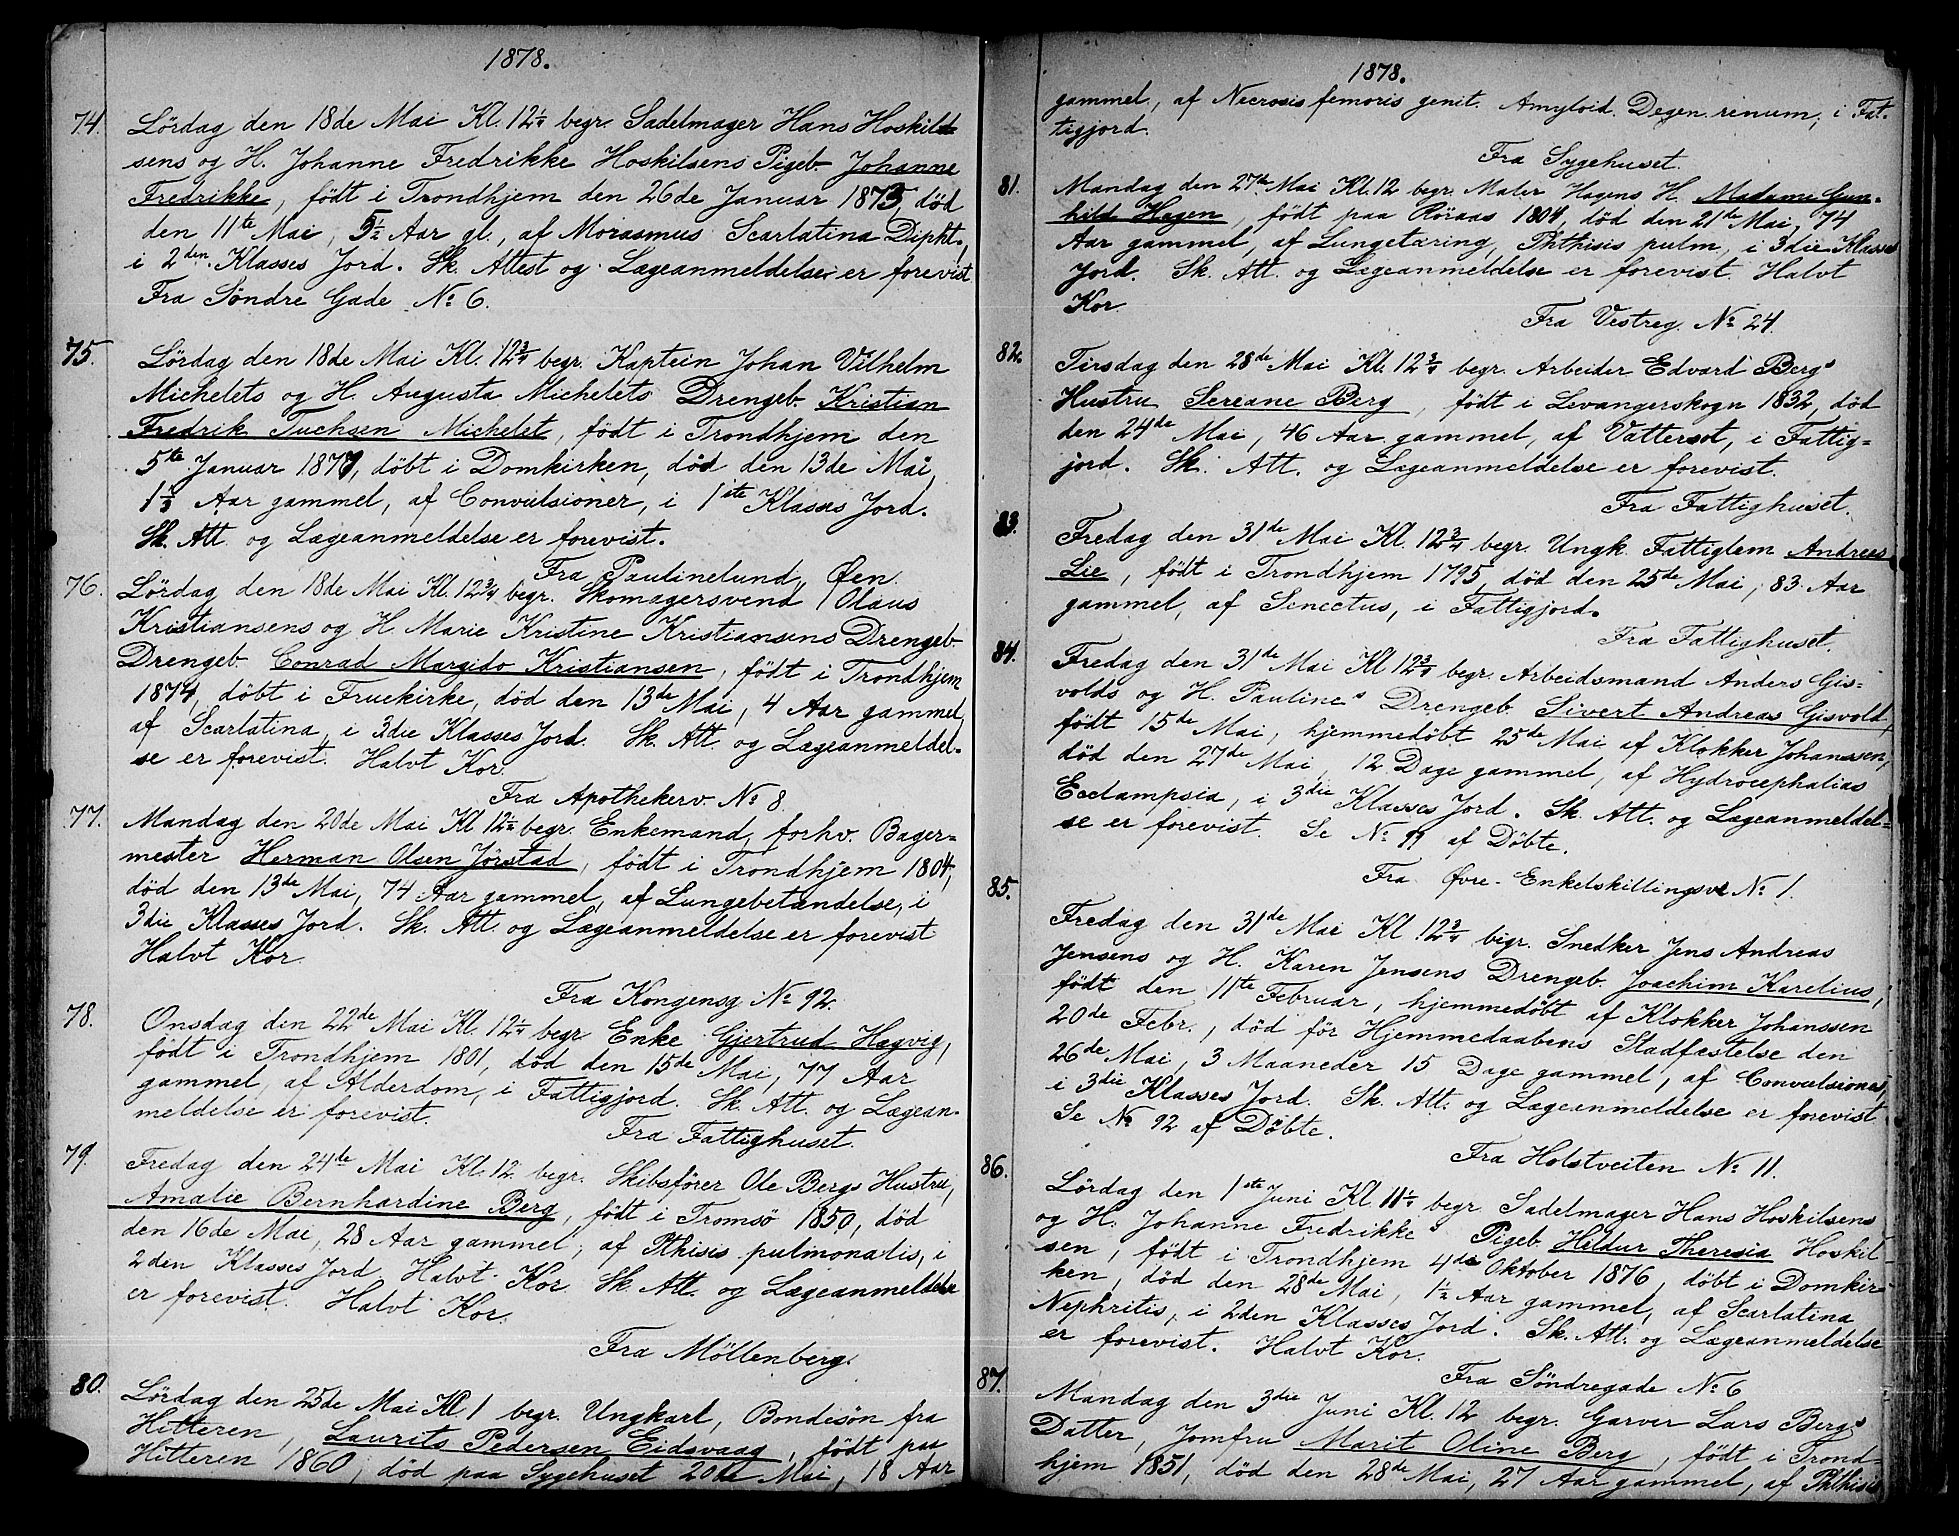 1878.
74. Lördag den 18de Mai Kl. 12¼ begr. Sadelmager Hans Hoskild-
sens og H. Johanne Fredrikke Hoskilsens Pigeb. Johanne
Fredrikke, födt i Trondhjem den 26de Januar 1873, död
den 11te Mai, 5½ Aar gl., af Morasmus Scarlatina Dipht.,
i 2den Klasses Jord. Sk. Attest og Lægeanmeldelse er forevist
Fra Söndre Gade No 6.
75. Lördag den 18de Mai Kl. 12¾ begr. Kaptein Johan Vilhelm
Michelets og H. Augusta Michelets Drengeb. Kristian
Fredrik Tuchsen Michelet, födt i Trondhjem den
5te Januar 1877, döbt i Domkirken, död den 13de Mai,
1⅓ Aar gammel, af Convulsioner, i 1ste Klasses Jord.
Sk. Att. og Lægeanmeldelse er forevist.
Fra Paulinelund, Øen.
76. Lördag den 18de Mai Kl. 12¾ begr. Skomagersvend Olaus
Kristiansens og H. Marie Kristine Kristiansens Drengeb.
Drengeb. Conrad Margido Kristiansen, födt i Trondhjem
1874, döbt i Fruekirke, död den 13de Mai, 4 Aar gammel,
af Scarlatina, i 3die Klasses Jord. Sk. Att. og Lægeanmeldel-
se er forevist. Halvt Kor.
Fra Apothekerv. No 8.
77. Mandag den 20de Mai Kl 12½ begr. Enkemand, forhv. Bager-
mester Herman Olsen Jörstad, födt i Trondhjem 1804,
död den 13de Mai, 74 Aar gammel, af Lungebetændelse, i
3die Klasses Jord. Sk. Att. og Lægeanmeldelse er forevist
Halvt Kor.
Fra Kongensg No 92.
78. Onsdag den 22de Mai Kl. 12¼ begr Enke Gjertrud Hagvig,
födt i Trondhjem 1801, död den 15de Mai, 77 Aar
gammel, af Alderdom, i Fattigjord. Sk. Att. og Lægean-
meldelse er forevist.
Fra Fattighuset.
79. Fredag den 24de Mai Kl. 12 begr. Skibsförer Ole Bergs Hustru,
Amalie Bernhardine Berg, födt i Tromsö 1850, död
den 16de Mai, 28 Aar gammel, af Pthisis pulmonalis, i
2den Klasses Jord Halvt Kor Sk. Att. og Lægeanmeldelse
er forevist. Halvt Kor.
Fra Möllenberg.
80. Lördag den 25de Mai Kl 1 begr. Ungkarl, Bondesön fra
Hitteren, Laurits Pedersen Eidsvaag, födt paa
Hitteren 1860, död paa Sygehuset 20de Mai, 18 Aar
1878.
gammel, af Necrosis femoris genit. Amyloid. Degen. renum, i Fat-
tigjord.
Fra Sygehuset.
81. Mandag den 27de Mai Kl. 12 begr. Maler Hagens H. Madame Gun-
hild Hagen, födt paa Röraas 1804, död den 21de Mai, 74
Aar gammel, af Lungetæring, Phthisis pulm, i 3die Klasses
Jord. Sk. Att. og Lægeanmeldelse er forevist. Halvt
Kor.
Fra Vestreg. No 24.
82. Tirsdag den 28de Mai Kl. 12¾ begr. Arbeider Edvard Bergs
Hustru Sereane Berg, födt i Levangerskogn 1832, död
den 24de Mai, 46 Aar gammel, af Vattersot, i Fattig-
jord. Sk. Att. og Lægeanmeldelse er forevist.
Fra Fattighuset.
83. Fredag den 31de Mai Kl. 12¾ begr. Ungk. Fattiglem Andreas
Lie, födt i Trondhjem 1795, död den 25de Mai, 83 Aar
gammel, af Senectus, i Fattigjord.
Fra Fattighuset.
84. Fredag den 31de Mai Kl 12¾ begr. Arbeidsmand Anders Gis-
volds og H. Pauline's Drengeb. Sivert Andreas Gisvold,
födt 15de Mai, hjemmedöbt 25de Mai af Klokker Johanssen,
död den 27de Mai, 12 Dage gammel, af Hydrocephalias
Ecclampsia, i 3die Klasses Jord. Sk. Att. og Lægeanmeldel-
se er forevist. Se No 91 af Döbte.
Fra Övre Enkelskillingsve No 1.
85. Fredag den 31de Mai Kl. 12¾ begr. Snedker Jens Andreas
Jensens og H. Karen Jensens Drengeb. Joachim Karelius,
födt den 11te Februar, hjemmedöbt af Klokker Johanssen
20de Febr., död för Hjemmedaabens Stadfæstelse den
26de Mai, 3 Maaneder 15 Dage gammel, af Convulsiones,
i 3die Klasses Jord. Sk. Att. og Lægeanmeldelse er forevist
Se No 92 af Döbte.
Fra Holstveiten No 11.
86. Lördag den 1ste Juni Kl 11½ begr Sadelmager Hans Hoskilsens
og H. Johanne Fredrikke's Pigeb. Hildur Theresia Hoskil-
sen, födt i Trondhjem 4de Oktober 1876, döbt i Domkir-
ken, död den 28de Mai, 1½ Aar gammel, af Scarlatina
Nephritis, i 2den Klasses Jord. Sk. Att. og Lægeanmeldelse
er forevist. Halvt Kor.
Fra Söndregade No 6
87. Mandag den 3die Juni Kl. 12 begr. Garver Lars Bergs
Datter, Jomfru Marit Oline Berg, födt i Trond-
hjem 1851, död den 28de Mai, 27 Aar gammel, af Phthisis